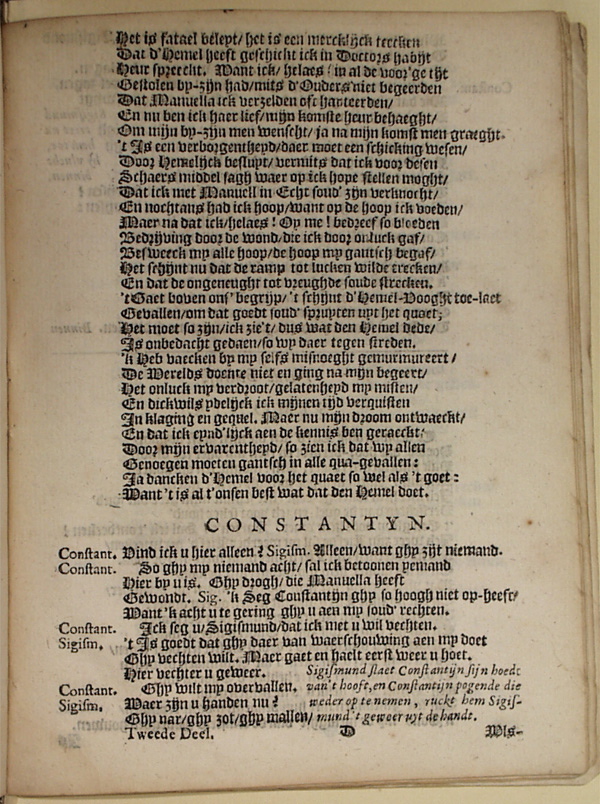 Het is fatael beleyt/ het is een mercklijck teecken
Dat d'Hemel heeft geschicht ick in Doctors habijt
Heur spreecht. Want ick/ helaes! in al de voor'ge tijt
Gestolen by-zijn had/ mits d'Ouders niet begeerden
Dat Manuella ick verzelden oft hanteerden/
En nu ben ick haer lief/ mijn komste heur behaeght/
Om mijn by-zijn men wenscht/ ja na mijn komst men graeght.
't Is een verborgentheyd/ daer moet een schicking wesen/
Door Hemelijck besluyt/ vermits dat ick voor desen
Schaers middel sagh waer op ick hope stellen moght/
Dat ick met Manuell in Echt soud' zijn verknocht/
En nochtans had ick hoop/ want op de hoop ick voeden/
Maer na dat ick/ helaes! Oy me! bedreef so bloeden
Bedrijving door de wond/ die ick door onluck gaf/
Besweeck my alle hoop/ de hoop my gantsch begaf/
Het schijnt nu dat de ramp tot lucken wilde trecken/
En dat de ongeneught tot vreughde soude strecken.
't Gaet boven ons' begrijp/ 't schijnt d'Hemel-Vooght toe-laet
Gevallen/ om dat goedt soud' spruyten uyt het quaet;
Het moet so zijn/ ick zie't/ dus wat den Hemel dede/
Is onbedacht gedaen/ so wy daer tegen streden.
'k Heb vaecken by my selfs misnoeght gemurmureert/
De Werelds doente niet en ging na mijn begeert/
Het onluck my verdroot/ gelatenheyd my misten/
En dickwils ydelijck ick mijnen tijd verquisten
In klaging en gequel. Maer nu mijn droom ontwaeckt/
En dat ick eynd'lijck aen de kennis ben geraeckt:
Door mijn ervarentheyd/ so zien ick dat wy allen
Genoegen moeten gantsch in alle qua-gevallen:
Ja dancken d'Hemel voor het quaet so wel als 't goet:
Want 't is al t'onsen best wat dat den Hemel doet.
CONSTANTYN.
Constant. Vind ick u hier alleen? Sigism. Alleen/ want ghy zijt niemand.
Constant. So ghy my niemand acht/ sal ick betoonen yemand
Hier by u is. Ghy drogh/ die Manuella heeft
Gewondt. Sig. 'k Seg Constantijn ghy so hoogh niet op-heeft/
Want 'k acht u te gering ghy u aen my soud' rechten.
Constant. Ick seg u/ Sigismund/ dat ick met u wil vechten.
Sigism. 't Is goedt dat ghy daer van waerschouwing aen my doet
Ghy vechten wilt. Maer gaet en haelt eerst weer u hoet.
Hier vechter u geweer. Sigismund slaet Constantijn sijn hoedt
Constant. Ghy wilt my overvallen. van't hooft, en Constantijn pogende die
Sigism. Waer zijn u handen nu? weder op te nemen, ruckt hem Sigis-
Ghy nar/ ghy zot/ ghy mallen/ mund 't geweer uyt de hande.
Tweede Deel. D Als-